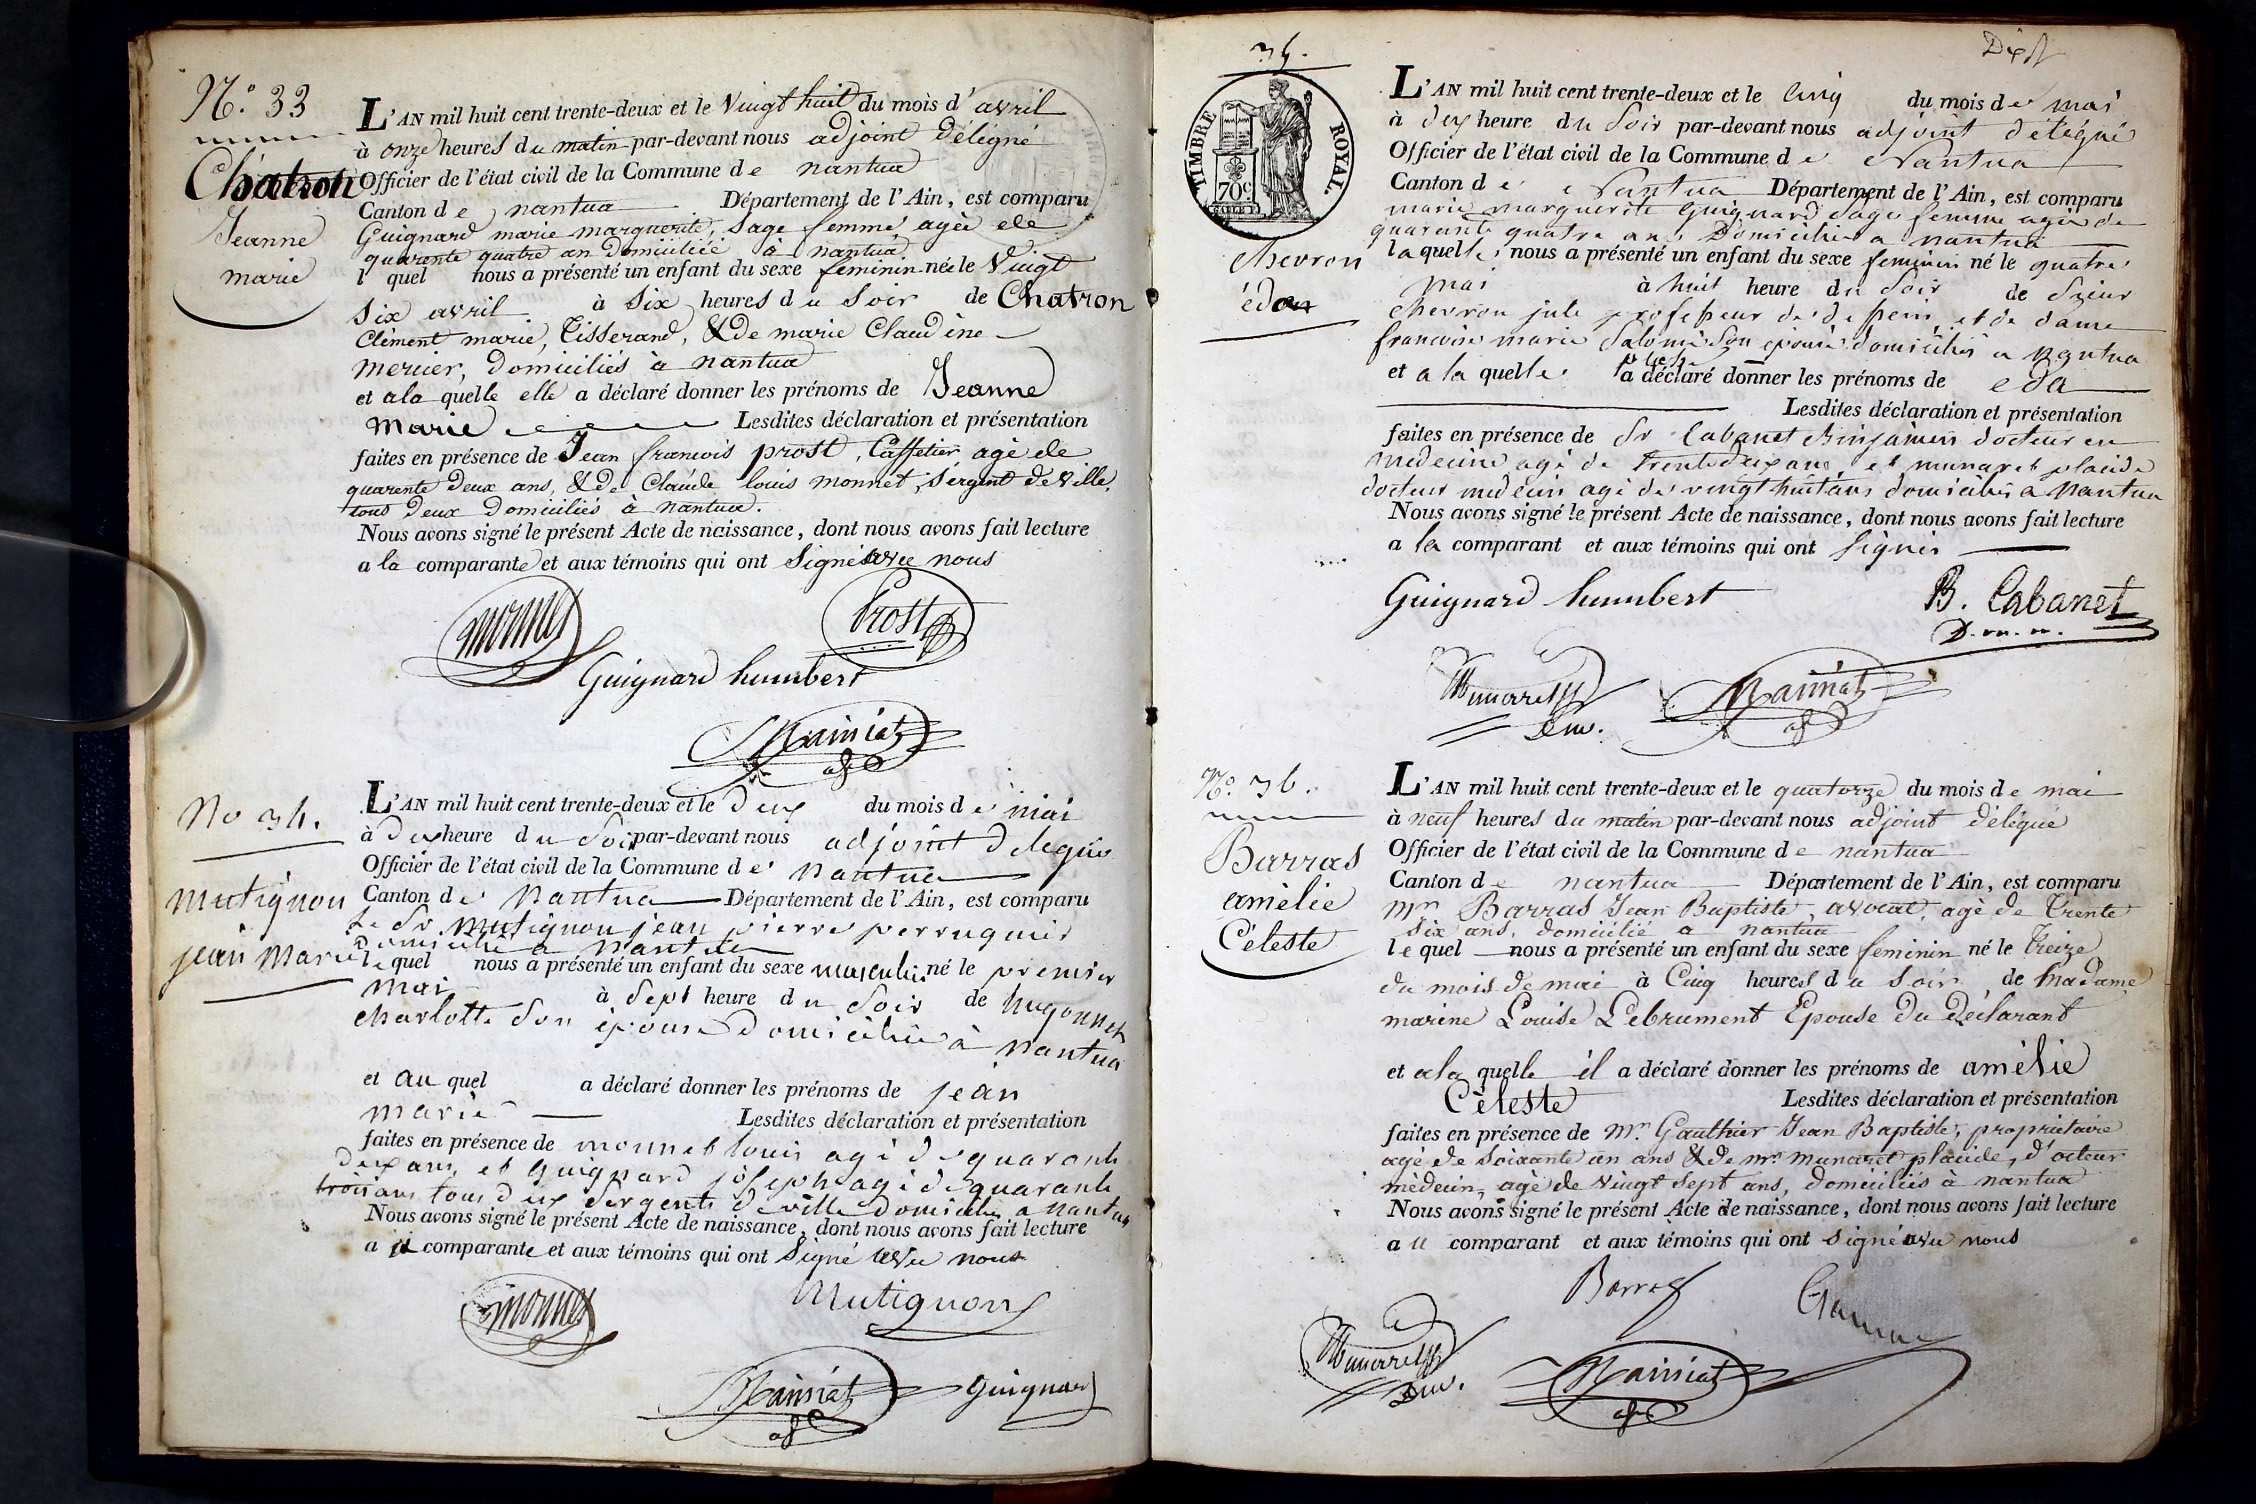 N.° 33
Chatron
Jeanne
marie
L'AN mil huit cent trente-deux et le Vingt huit du mois d'avril
à onze heures du matin par-devant nous adjoint délégné
Officier de l'état civil de la Commune de nantua
Canton de nantua Département de l'Ain, est comparu
Guignard marie marguerite, sage femme, agée de
quarante quatre an domiciliée à nantua
l quel nous a présenté un enfant du sexe feminin née le Vingt
six avril à six heures du soir de Chatron
Clément marie, Tisserand, & de marie Claudine
mercier, domiciliés à nantua
et a la quelle elle a déclaré donner les prénoms de Jeanne
marie Lesdites déclaration et présentation
faites en présence de Jean francois prost, Caffetier agé de
quarente deux ans, & de Claude louis monnet, sergent de ville,
tous deux domiciliés à nantua.
Nous avons signé le présent Acte de naissance, dont nous avons fait lecture
a la comparante et aux témoins qui ont signé avec nous
monnet Prost
Guignard humbert
Mainiat
adj
No 34.
mutignon
jean Marie
L'AN mil huit cent trente-deux et le deux du mois de mai
à deux heure du soir par-devant nous adjoint delegué
Officier de l'état civil de la Commune de nantua
Canton de Nantua Département de l'Ain, est comparu
Le Sr Mutignon jean pierre perruquier
domicilié a nantua
le quel nous a présenté un enfant du sexe masculin né le premier
mai à sept heure du soir de hugonnet
charlotte son épouse domiciliée à nantua
et au quel a déclaré donner les prénoms de jean
marie Lesdites déclaration et présentation
faites en présence de monnet louis agé de quarante
deux ans, et Guignard joseph agé de quarante
trois ans tous deux sergents de ville domiciliés a nantua
Nous avons signé le présent Acte de naissance, dont nous avons fait lecture
a comparante et aux témoins qui ont signé avec nous
monnet Mutignon
Mainiat Guignard
adj
35.
TIMBRE ROYAL.
70c
chevron
éda
L'AN mil huit cent trente-deux et le Cinq du mois de mai
à deux heure du soir par-devant nous adjoint délégué
Officier de l'état civil de la Commune de Nantua
Canton de Nantua Département de l'Ain, est comparu
marie marguerite Guignard sage femme agée de
quarante quatre ans, domiciliée a nantua
laquelle nous a présenté un enfant du sexe feminin né le quatre
mai à huit heure du soir de Sieur
chevron jule professeur de dessein, et de dame
francoise marie Salomé son épouse domiciliés a nantua
et a la quelle a déclaré donner les prénoms de eda
Lesdites déclaration et présentation
faites en présence de Sr Cabanet Binjamin docteur en
medecine agé de trente deux ans, et munaret placide
docteur medecin agé de vingt huit ans domiciliés a Nantua
Nous avons signé le présent Acte de naissance, dont nous avons fait lecture
a la comparant et aux témoins qui ont signés
Guignard humbert B. Cabanet
D. m. m.
Munaret
Dm. Mainiat
adj
N.° 36.
Barras
amélie
Céleste
L'AN mil huit cent trente-deux et le quatorze du mois de mai
à neuf heures du matin par-devant nous adjoint délégué
Officier de l'état civil de la Commune de nantua
Canton de nantua Département de l'Ain, est comparu
Mr Barras Jean Baptiste, avocat, agé de trente
six ans, domicilié a nantua
le quel nous a présenté un enfant du sexe feminin né le treize
du mois de mai à Cinq heures du soir, de madame
marine Louise Lebrument Epouse du déclarant
et a la quelle il a déclaré donner les prénoms de amélie
Céleste Lesdites déclaration et présentation
faites en présence de Mr. Gauthier Jean Baptiste, propriétaire
agé de soixante un ans & de mr. munaret placide, docteur
médecin, agé de vingt sept ans, domiciliés à nantua
Nous avons signé le présent Acte de naissance, dont nous avons fait lecture
a u comparant et aux témoins qui ont signé avec nous
Barras
Munaret
Dm. Mainiat
adj